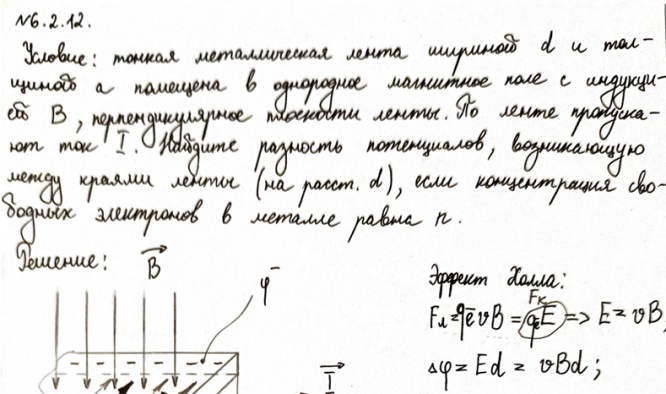 №6.2.12.
Условие: тонкая металлическая лента шириной d и тол-
щиной a помещена в однородное магнитное поле с индукци-
ей B, перпендикулярное плоскости ленты. По ленте пропуска-
ют ток I. Найдите разность потенциалов, возникающую
между краями ленты (на расст. d), если концентрация сво-
бодных электронов в металле равна n.
Решение:
B
φ⁻
I
Эффект Холла:
Fк
Fл = qēvB = qeE => E = vB;
Δφ = Ed = vBd;